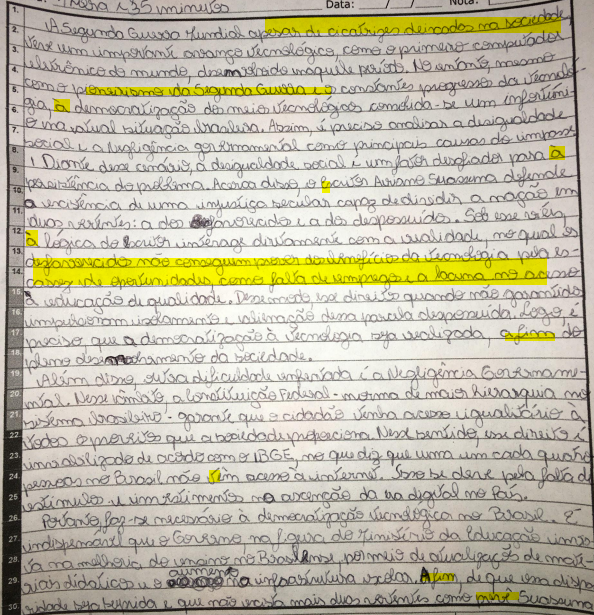 1. hora e 35 minutos Data: / / Nota:
2. A Segunda Guerra Mundial apesar de cicatrizes deixados na sociedade,
3. teve um importante avanço tecnológico, como o primeiro computador
4. eletrônico do mundo, naquele período. No entanto, mesmo
5. com o pioneirismo da Segunda Guerra e o constantes progressos da tecnolo-
6. gia, a democratização dos meios tecnológicos consolida-se um
7. na atual situação brasileira. Assim, é preciso analisar a desigualdade
8. social e a negligência governamental como principais causas do
9. Diante desse cenário, a desigualdade social é um fator para a
10. persistência do problema. Acerca disso, o escritor Ariano Suassuna defende
11. a existência de uma injustiça secular capaz de dividir a nação em
12. duas vertentes: a dos favorecidos e a dos despossuídos. Sob esse viés,
13. a lógica do escritor diretamente com a realidade, no qual os
14. desfavorecidos não conseguem dos benefícios da tecnologia pela es-
15. cassez de oportunidades, como falta de empregos e a lacuna no acesso
16. à educação de qualidade. Desse modo, esse direito quando não garantidos
17. isolamento e dessa parcela despossuída. Logo é
18. preciso que a democratização à tecnologia seja realizada, afim do
19. pleno da sociedade.
20. Além disso, outra dificuldade enfrentada é a Negligência Govername-
21. ntal. Nesse âmbito, a Constituição Federal - norma de maior hierarquia no
22. sistema brasileiro - garante que o cidadão tenha acesso igualitário a
23. todos que a sociedade proporciona. Nesse sentido, esse direito é
24. de acordo com o IBGE, no que diz que uma em cada quatro
25. pessoas no Brasil não tem acesso à internet. Isso se deve pela falta de
26. estímulos e investimentos na ascenção da era digital no País.
27. Portanto, faz-se necessário a democratização tecnológica no Brasil. É
28. indispensável que o Governo na figura do Ministério da Educação
29. na melhoria do ensino no Brasil, por meio de atualizações de mate-
30. riais didáticos e o aumento a infraestrutura escolar. Afim, de que essa
seja e que não exista mais duas vertentes como Suassuna